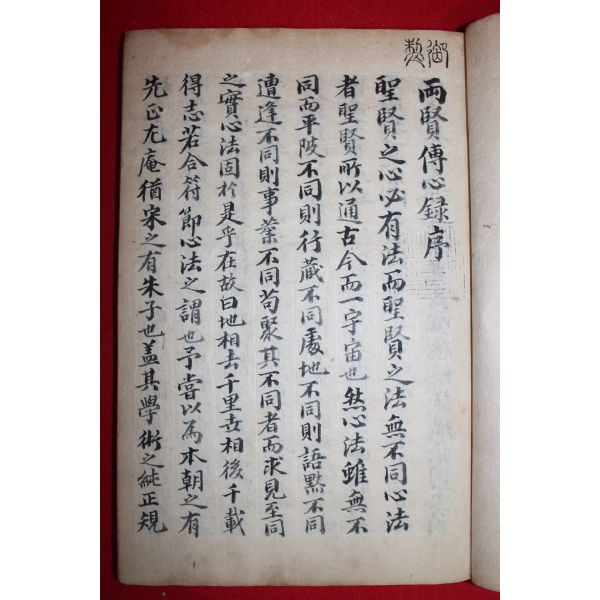 御製
両賢傳心録序
聖賢之心必有法而聖賢之法無不同心法
者聖賢所以通古今而一宇宙也然心法雖無不
同而平陂不同則行藏不同處地不同則語黙不同
遭逢不同則事業不同苟聚其不同者而求見至同
之實心法固於是乎在故曰地相去千里世相後千載
得志若合符節心法之謂也予嘗以為本朝之有
先正尤庵猶宋之有朱子也盖其學術之純正規